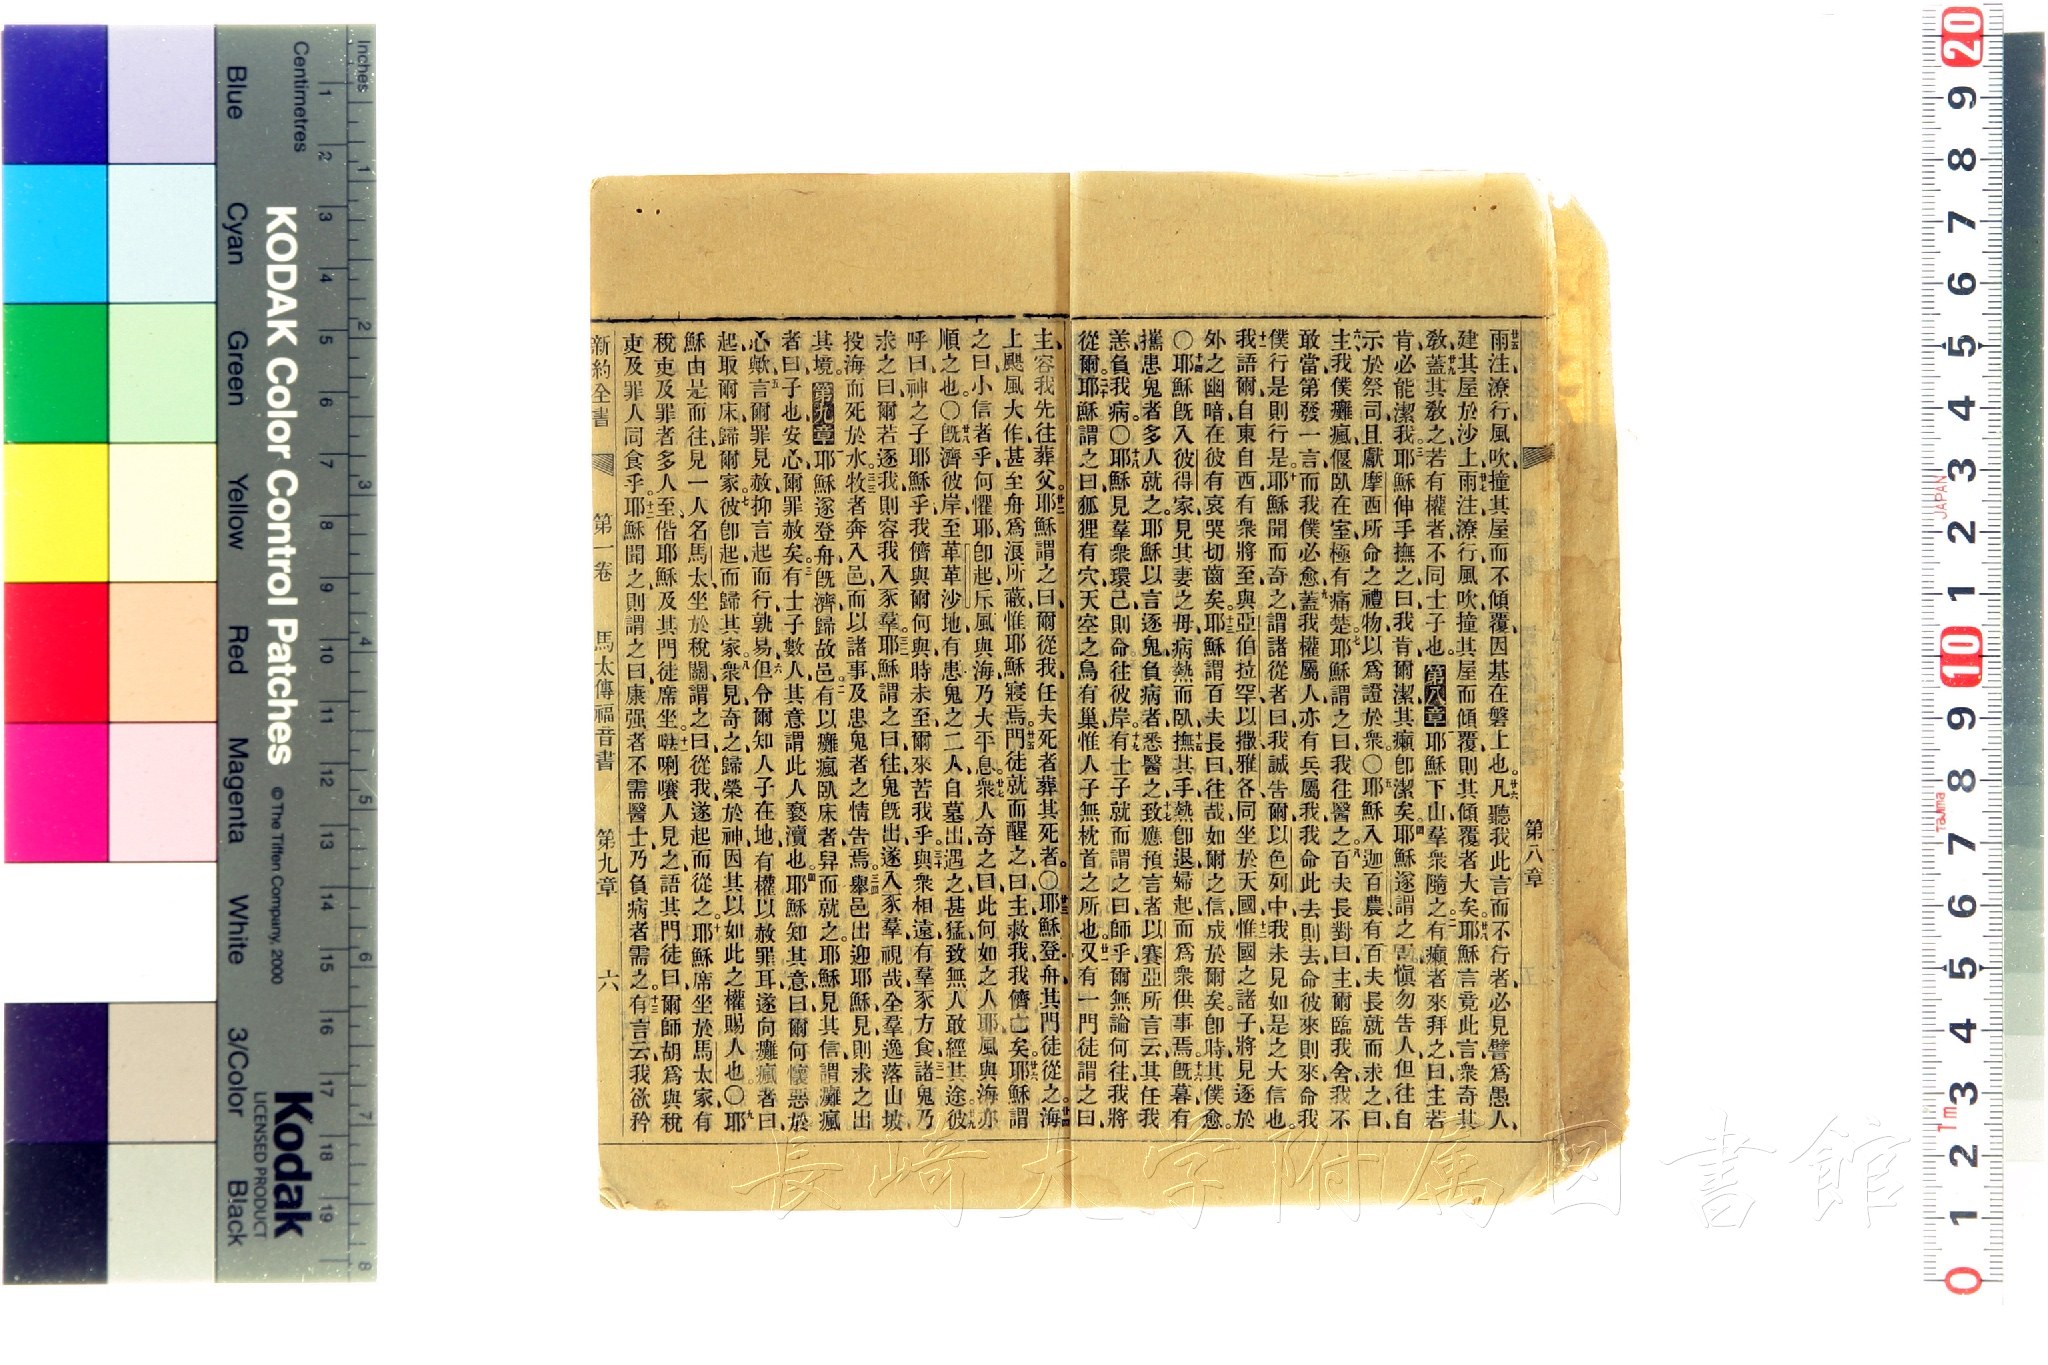 第八章
雨注潦行、風吹撞其屋而不傾覆、因基在磐上也。廿六凡聽我此言而不行者、必見譬爲愚人、
建其屋於沙上、廿七雨注潦行、風吹撞其屋而傾覆、則其傾覆者大矣。廿八耶穌言竟此言、衆奇其
敎、廿九蓋其敎之若有權者、不同士子也。第八章 耶穌下山、羣衆隨之、二有癩者來拜之曰、主若
肯、必能潔我、三耶穌伸手撫之曰、我肯、爾潔、其癩卽潔矣。四耶穌遂謂之曰、愼勿告人、但往自
示於祭司、且獻摩西所命之禮物、以爲證於衆。〇五耶穌入迦百農、有百夫長就而求之曰、
六主、我僕癱瘋、偃臥在室、極有痛楚、七耶穌謂之曰、我往醫之、八百夫長對曰、主、爾臨我舍、我不
敢當、第發一言、而我僕必愈、九蓋我權屬人、亦有兵屬我、我命此去則去、命彼來則來、命我
僕行是則行是。十耶穌聞而奇之、謂諸從者曰、我誠告爾、以色列中、我未見如是之大信也。
十一我語爾、自東自西有衆將至、與亞伯拉罕以撒雅各同坐於天國、十二惟國之諸子、將見逐於
外之幽暗、在彼有哀哭切齒矣。十三耶穌謂百夫長曰、往哉、如爾之信成於爾矣。卽時其僕愈。
〇十四耶穌旣入彼得家、見其妻之母病熱而臥、十五撫其手、熱卽退、婦起而爲衆供事焉。十六旣暮、有
攜患鬼者多人就之、耶穌以言逐鬼、負病者悉醫之、十七致應預言者以賽亞所言云、其任我
恙、負我病。〇十八耶穌見羣衆環己、則命往彼岸。十九有士子就而謂之曰、師乎、爾無論何往、我將
從爾、二十耶穌謂之曰、狐狸有穴、天空之鳥有巢、惟人子無枕首之所也。廿一又有一門徒謂之曰、
主、容我先往葬父、廿二耶穌謂之曰、爾從我、任夫死者葬其死者。〇廿三耶穌登舟、其門徒從之、廿四海
上颶風大作、甚至舟爲浪所蔽、惟耶穌寢焉、廿五門徒就而醒之曰、主、救我、我儕亡矣、廿六耶穌謂
之曰、小信者乎、何懼耶、卽起、斥風與海、乃大平息、廿七衆人奇之曰、此何如之人耶、風與海亦
順之也。〇廿八旣濟彼岸、至革革沙地、有患鬼之二人自墓出、遇之、甚猛、致無人敢經其途、廿九彼
呼曰、神之子耶穌乎、我儕與爾何與、時未至、爾來苦我乎、三十與衆相遠、有羣豕方食、三一諸鬼乃
求之曰、爾若逐我、則容我入豕羣、三二耶穌謂之曰、往、鬼旣出、遂入豕羣、視哉、全羣逸落山坡、
投海而死於水、三三牧者奔入邑、而以諸事、及患鬼者之情告焉、三四舉邑出迎耶穌、見則求之出
其境。第九章 一耶穌遂登舟、旣濟、歸故邑、二有以癱瘋臥床者舁而就之、耶穌見其信、謂癱瘋
者曰、子也安心、爾罪赦矣、三有士子數人、其意謂此人褻瀆也、四耶穌知其意曰、爾何懷惡於
心歟、五言爾罪見赦、抑言起而行、孰易、六但令爾知人子在地有權以赦罪耳、遂向癱瘋者曰、
起、取爾床歸爾家、七彼卽起而歸其家、八衆見奇之、歸榮於神、因其以如此之權賜人也。〇九耶
穌由是而往、見一人名馬太、坐於稅關、謂之曰、從我、遂起而從之。十耶穌席坐於馬太家、有
稅吏及罪者多人至、偕耶穌及其門徒席坐、十一𠵽唎嚷人見之、語其門徒曰、爾師胡爲與稅
吏及罪人同食乎、十二耶穌聞之、則謂之曰、康强者不需醫士、乃負病者需之、十三有言云、我欲矜
新約全書 第一卷 馬太傳福音書 第九章 六
長崎大学附属図書館
KODAK Color Control Patches © The Tiffen Company, 2000
Kodak
LICENSED PRODUCT
Inches 1 2 3 4 5 6 7 8
Centimetres 1 2 3 4 5 6 7 8 9 10 11 12 13 14 15 16 17 18 19
Blue Cyan Green Yellow Red Magenta White 3/Color Black
20 9 8 7 6 5 4 3 2 1 10 9 8 7 6 5 4 3 2 1 0
JAPAN
Tajima
Tm